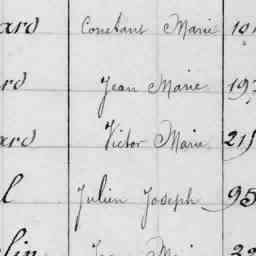 ard Constant Marie 19
rd Jean Marie 197
ard Victor Marie 215
l Julien Joseph 95
lin Jean Marie 22